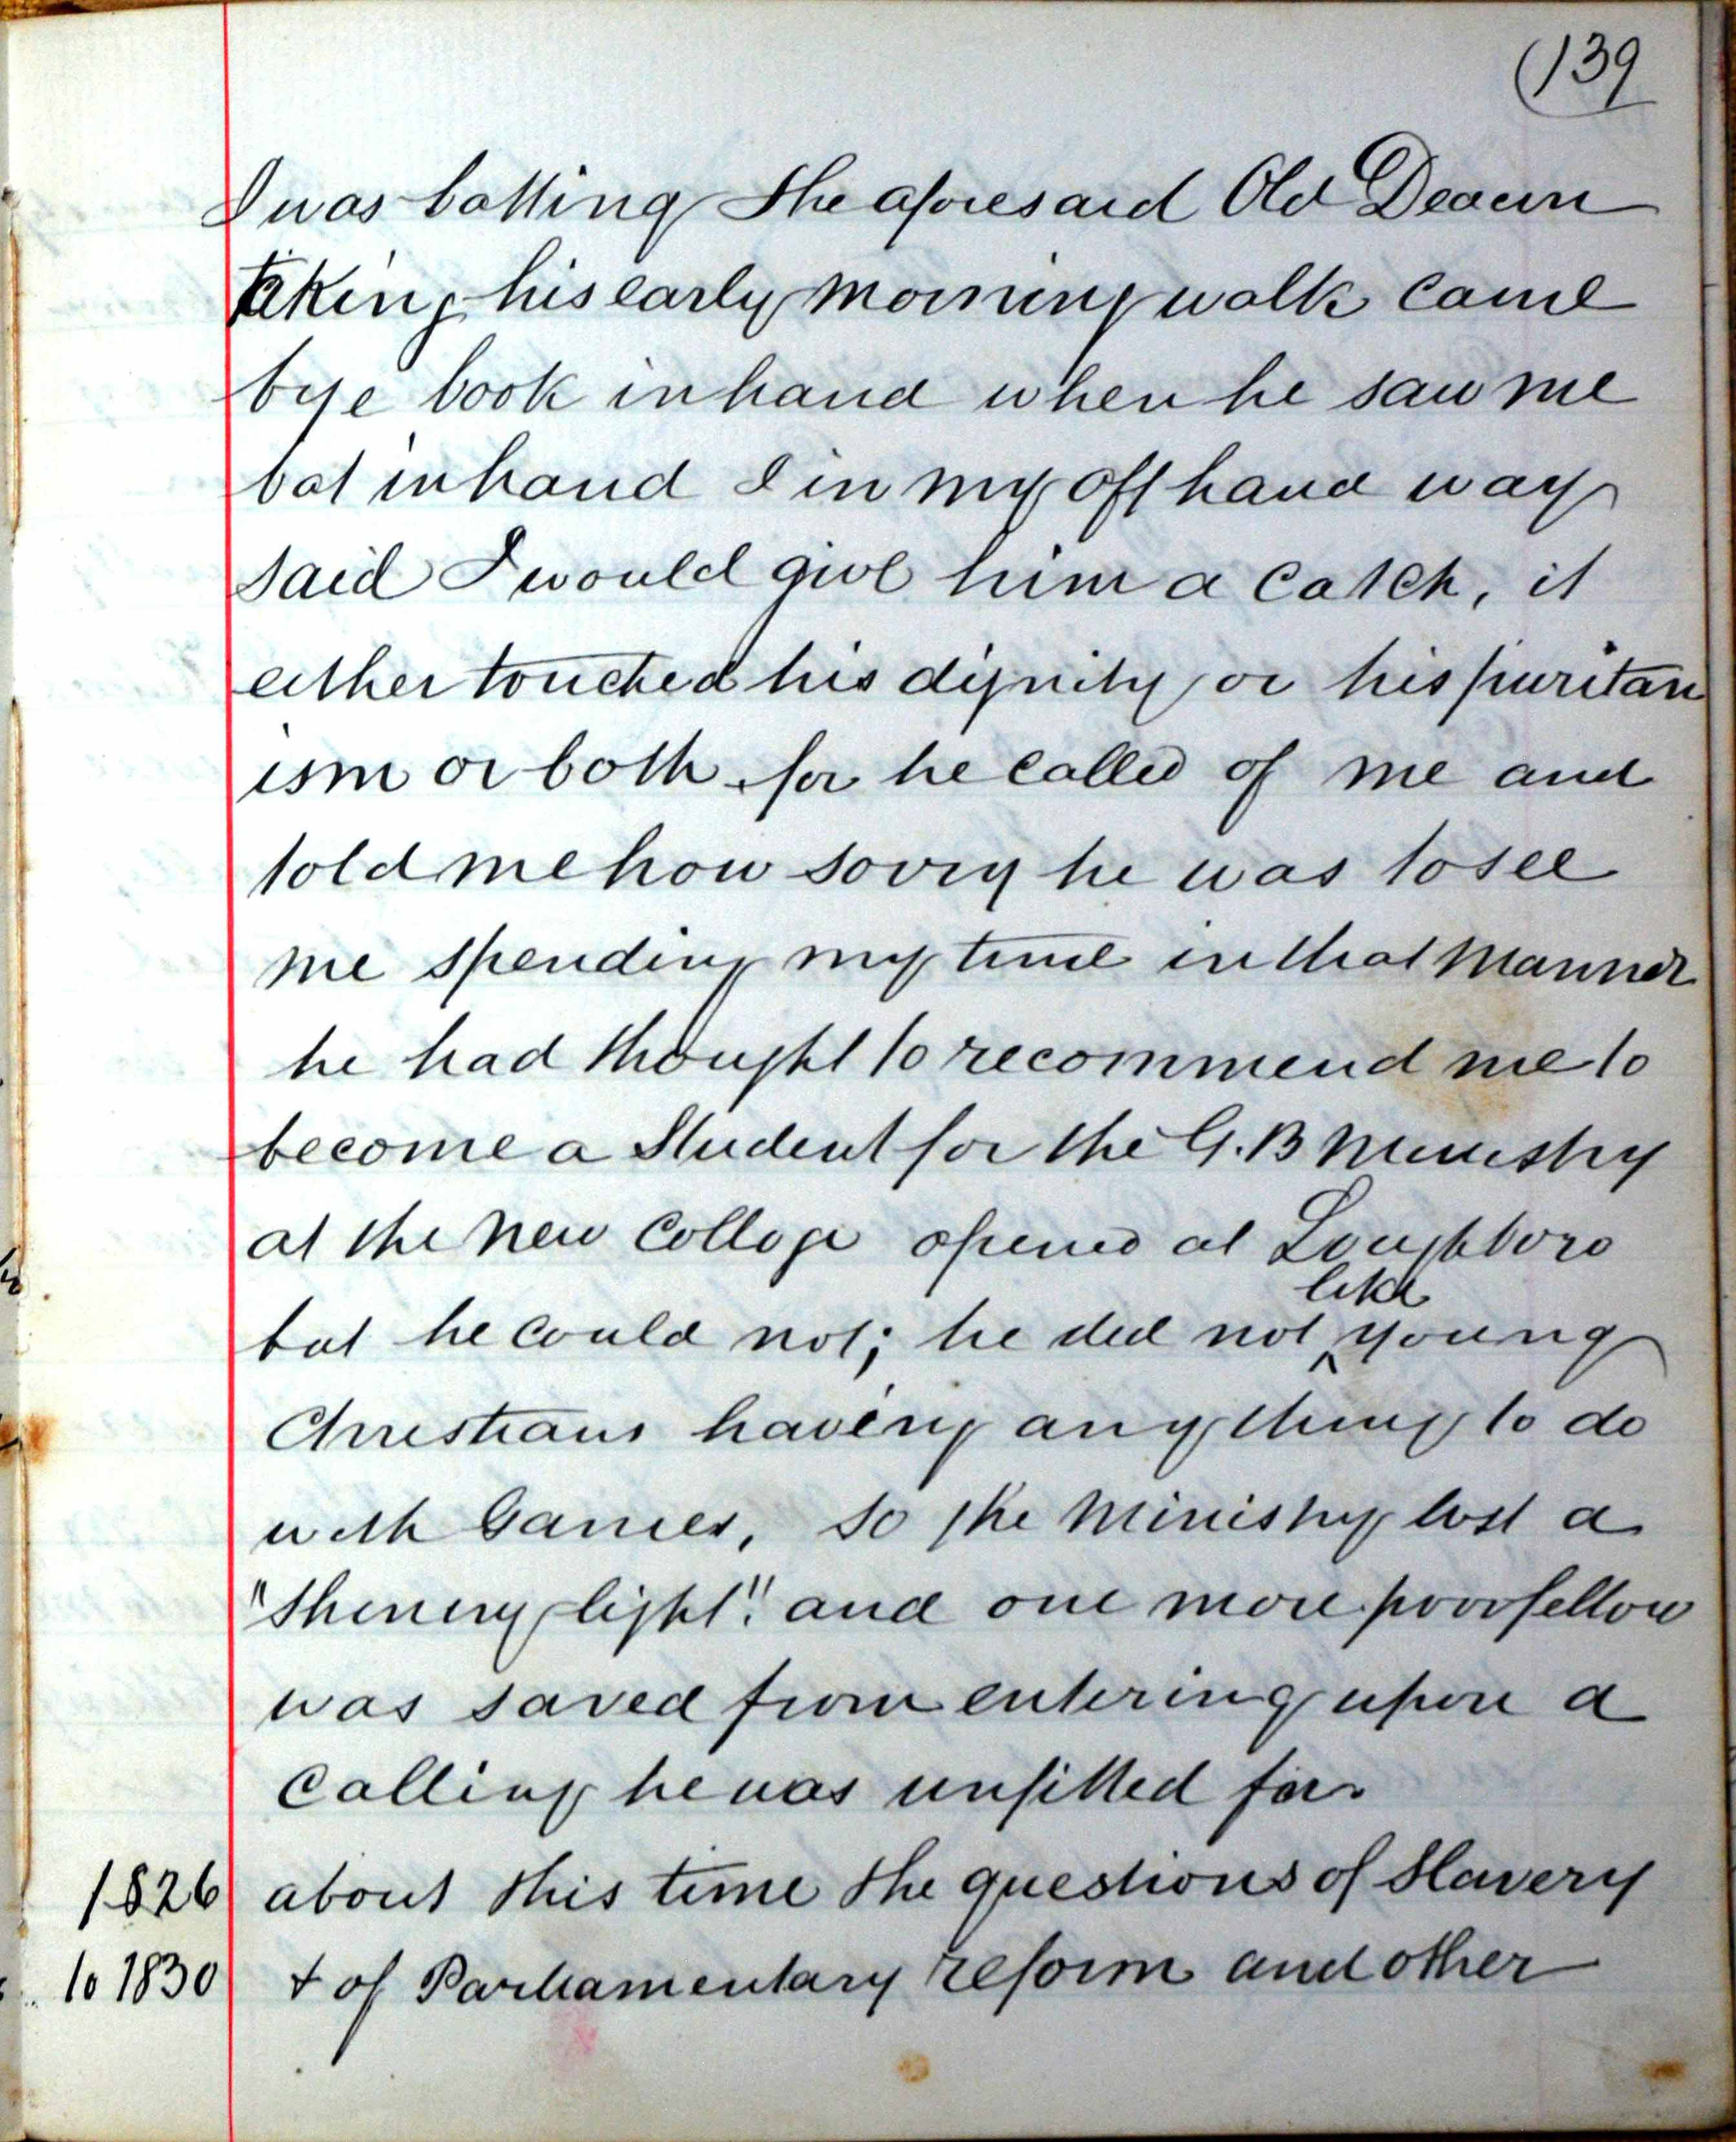 (139
I was batting the aforesaid Old Deacon
taking his early morning walk came
bye book in hand when he saw me
bat in hand I in my off hand way
said I would give him a catch, it
either touched his dignity or his puritan
ism or both for he called of me and
told me how sorry he was to see
me spending my time in that manner
he had thought to recommend me to
become a Student for the G.B Ministry
at the New College opened at Loughboro
like
but he could not; he did not ^ young
Christians having anything to do
with Games, so the Ministry lost a
"Shining light" and one more poor fellow
was saved from entering upon a
Calling he was unfitted for
1826 about this time the questions of Slavery
to 1830 & of Parliamentary reform and other